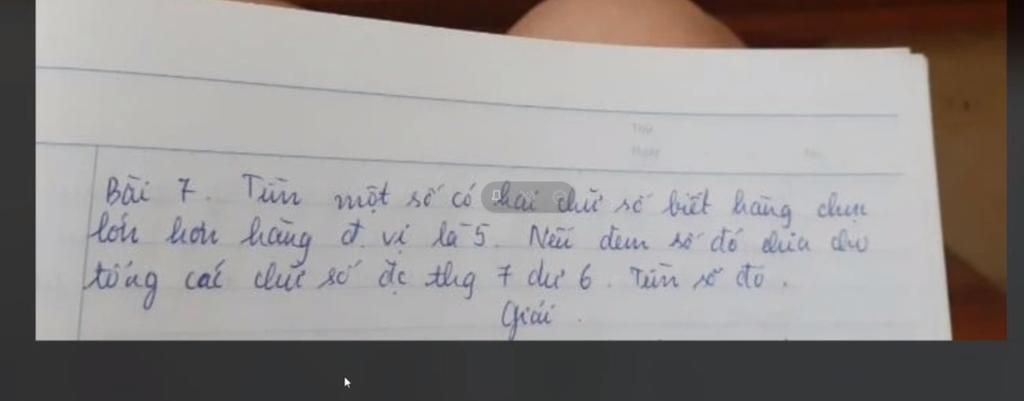 Thứ
Ngày
No.
Bài 7. Tìm một số có hai chữ số biết hàng chục
lớn hơn hàng đ. vị là 5. Nếu đem số đó chia cho
tổng các chữ số đc thg 7 dư 6. Tìm số đó.
Giải